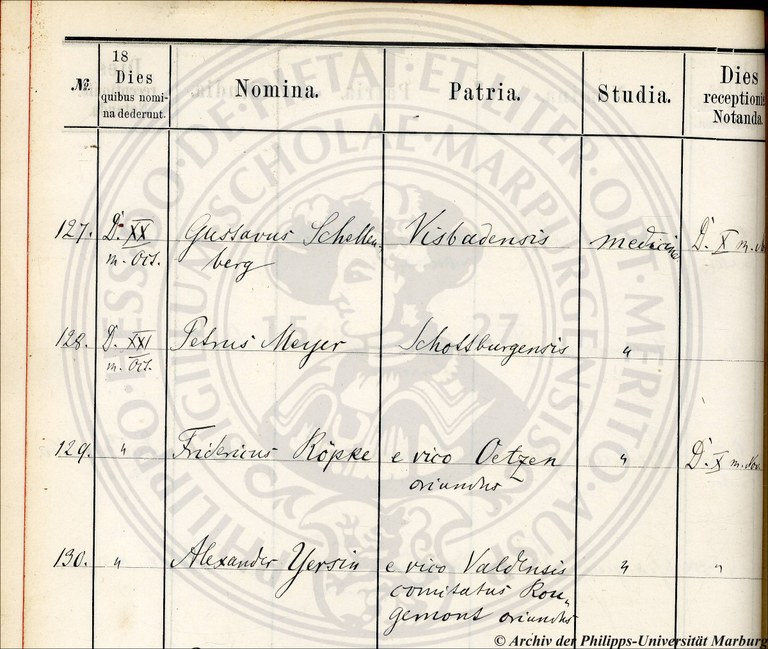 No. 18 Dies quibus nomina dederunt. Nomina. Patria. Studia. Dies receptionis Notanda
127. D. XX m. Oct. Gustavus Schellen-
berg Visbadensis medicina D. X m. No
128. D. XXI m. Oct. Petrus Meyer Schottburgensis "
129. " Fridericus Röpke e vico Oetzen
oriundus " D. X m. Nov.
130. " Alexander Yersin e vico Valdensis
comitatus Rou-
gemont oriundus " "
© Archiv der Philipps-Universität Marburg